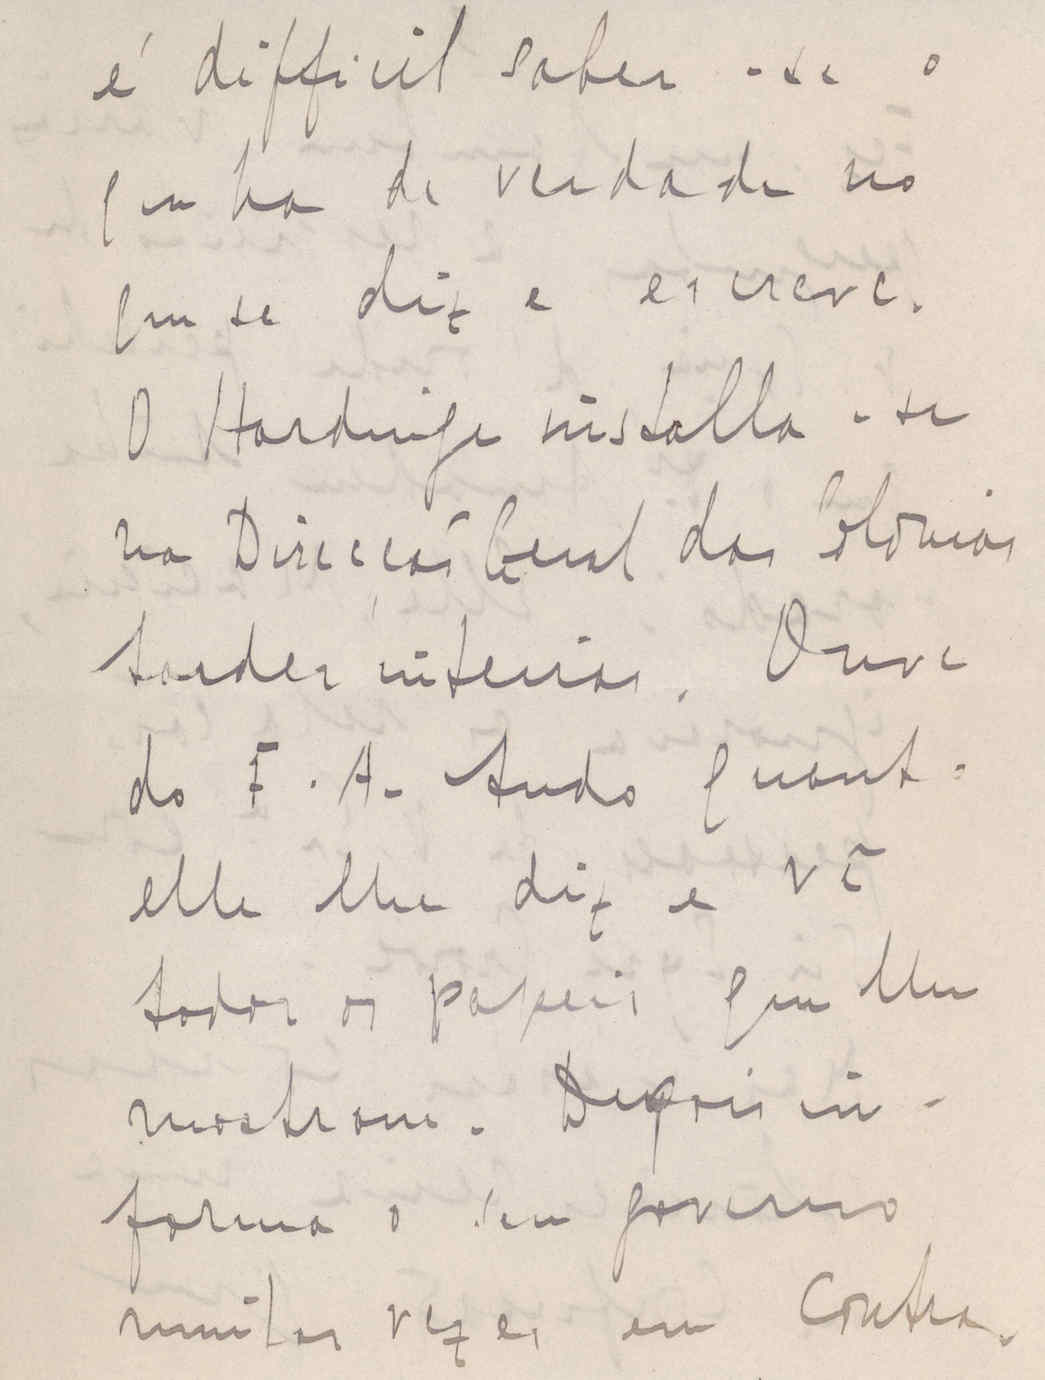 é difficil saber-se o
que ha de verdade no
que se diz e escreve.
O Hardinge installa-se
na Direcção Geral das Colonias
tardes inteiras. Ouve
do F. A. tudo quanto
elle lhe diz e vê
todos os papeis que lhe
mostram. Depois in-
forma o seu governo
muitas vezes em contra-